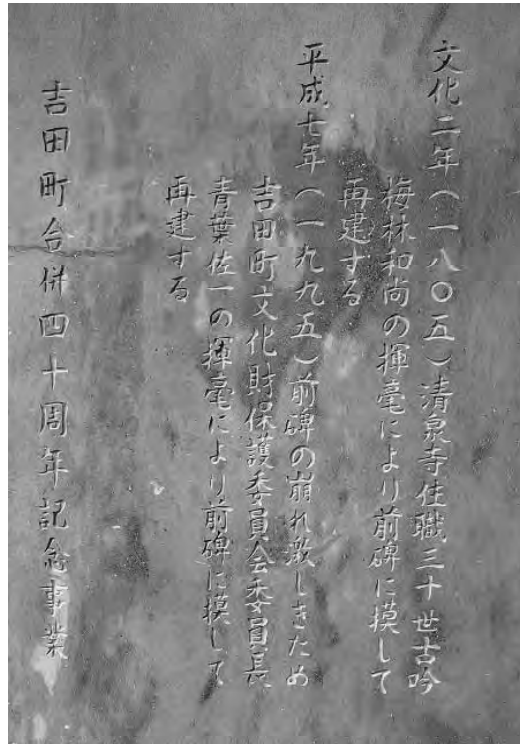 文化二年(一八〇五)清泉寺住職三十世古吟
梅林和尚の揮毫により前碑に摸して
再建する
平成七年(一九九五)前碑の崩れ激しきため
吉田町文化財保護委員会委員長
青葉佐一の揮毫により前碑に摸して
再建する
吉田町合併四十周年記念事業